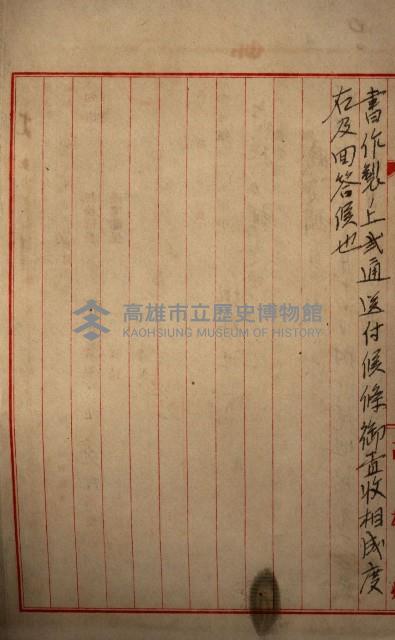 書作製ノ上弐通送付候條御査収相成度
右及回答候也
高雄市立歷史博物館
KAOHSIUNG MUSEUM OF HISTORY